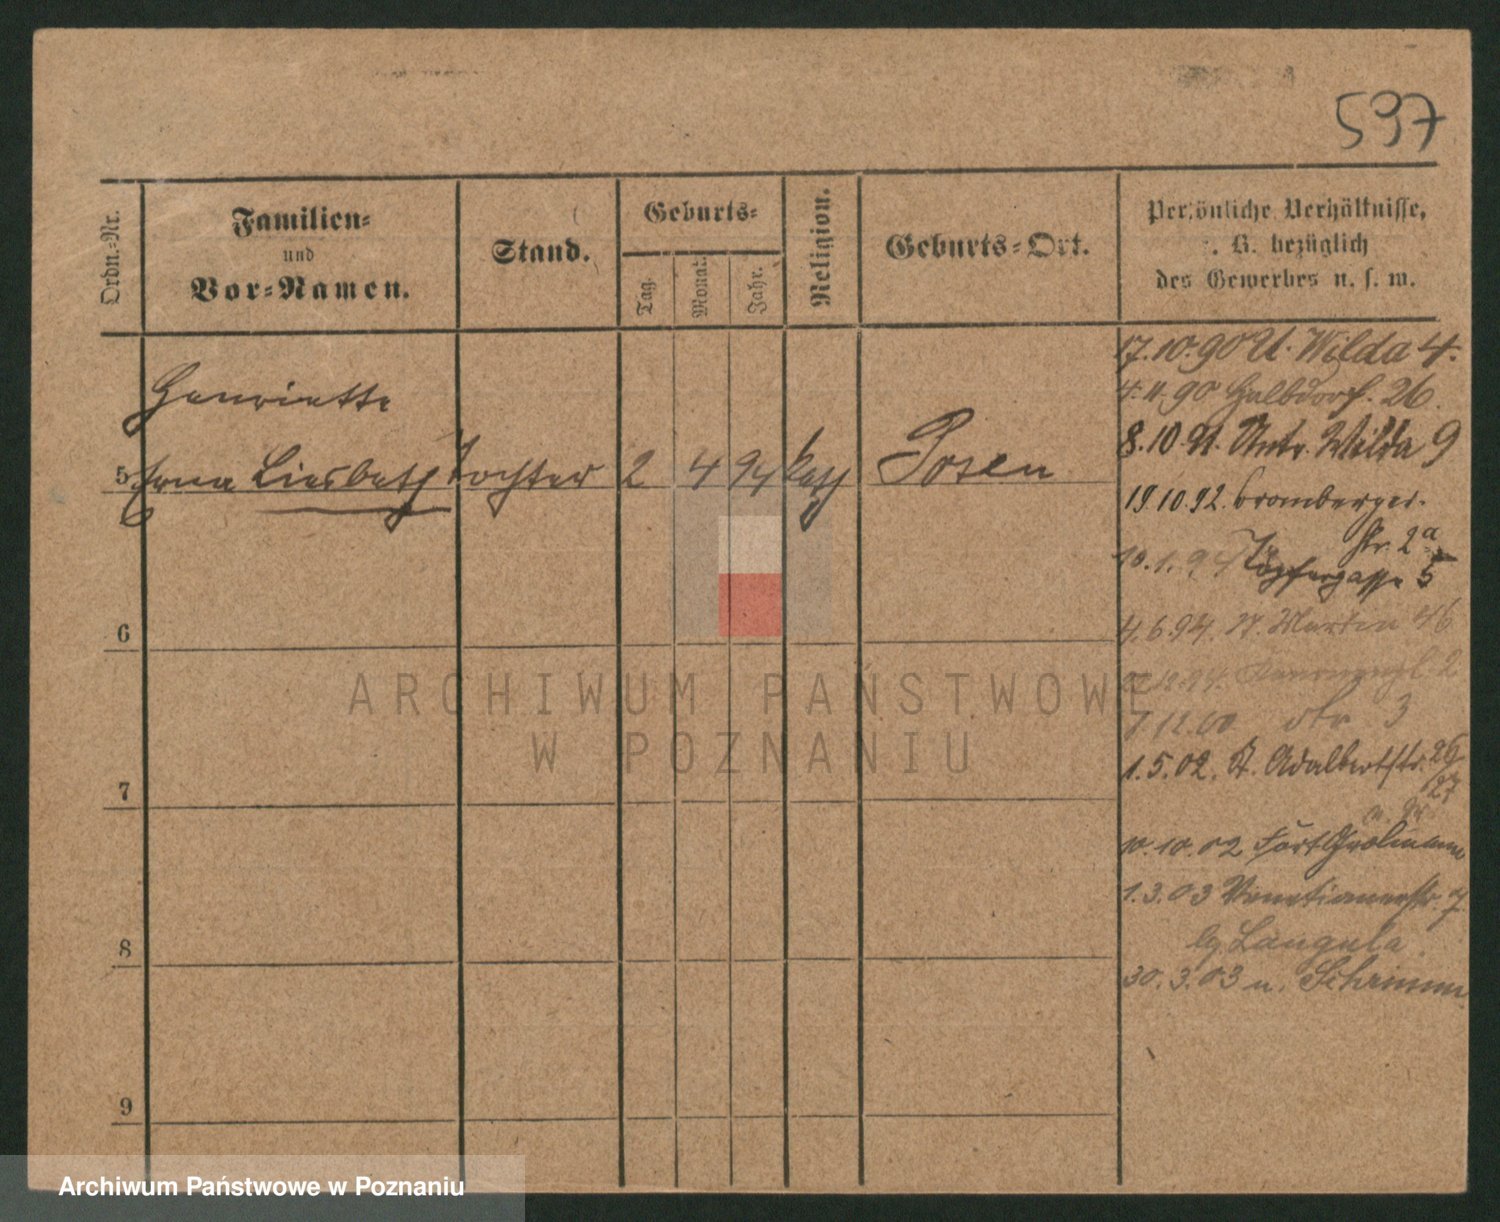 597
Ordn.-Nr.
Familien-
und
Vor-Namen.
Stand.
Geburts-
Tag.
Monat.
Jahr.
Religion.
Geburts-Ort.
Persönliche Verhältnisse,
z. B. bezüglich
des Gewerbes u. s. w.
Henriette
5 Erna Liesbeth Tochter 2 4 94 kath Posen
6
7
8
9
17.10.90 U. Wilda 4.
4.11.90 Halbdorf. 26.
8.10.91. Untr. Wilda 9
19.10.92. Bromberger-
str. 2a
10.1.94 Töpfergasse 5
4.6.94. St. Martin 46
2
7.12.00 str 3
1.5.02. St. Adalbertstr. 26/
27
10.10.02 Fort Grolmann
1.3.03 Venetianerstr. 7
Langula
30.3.03 n. Schrimm
ARCHIWUM PAŃSTWOWE
W POZNANIU
Archiwum Państwowe w Poznaniu